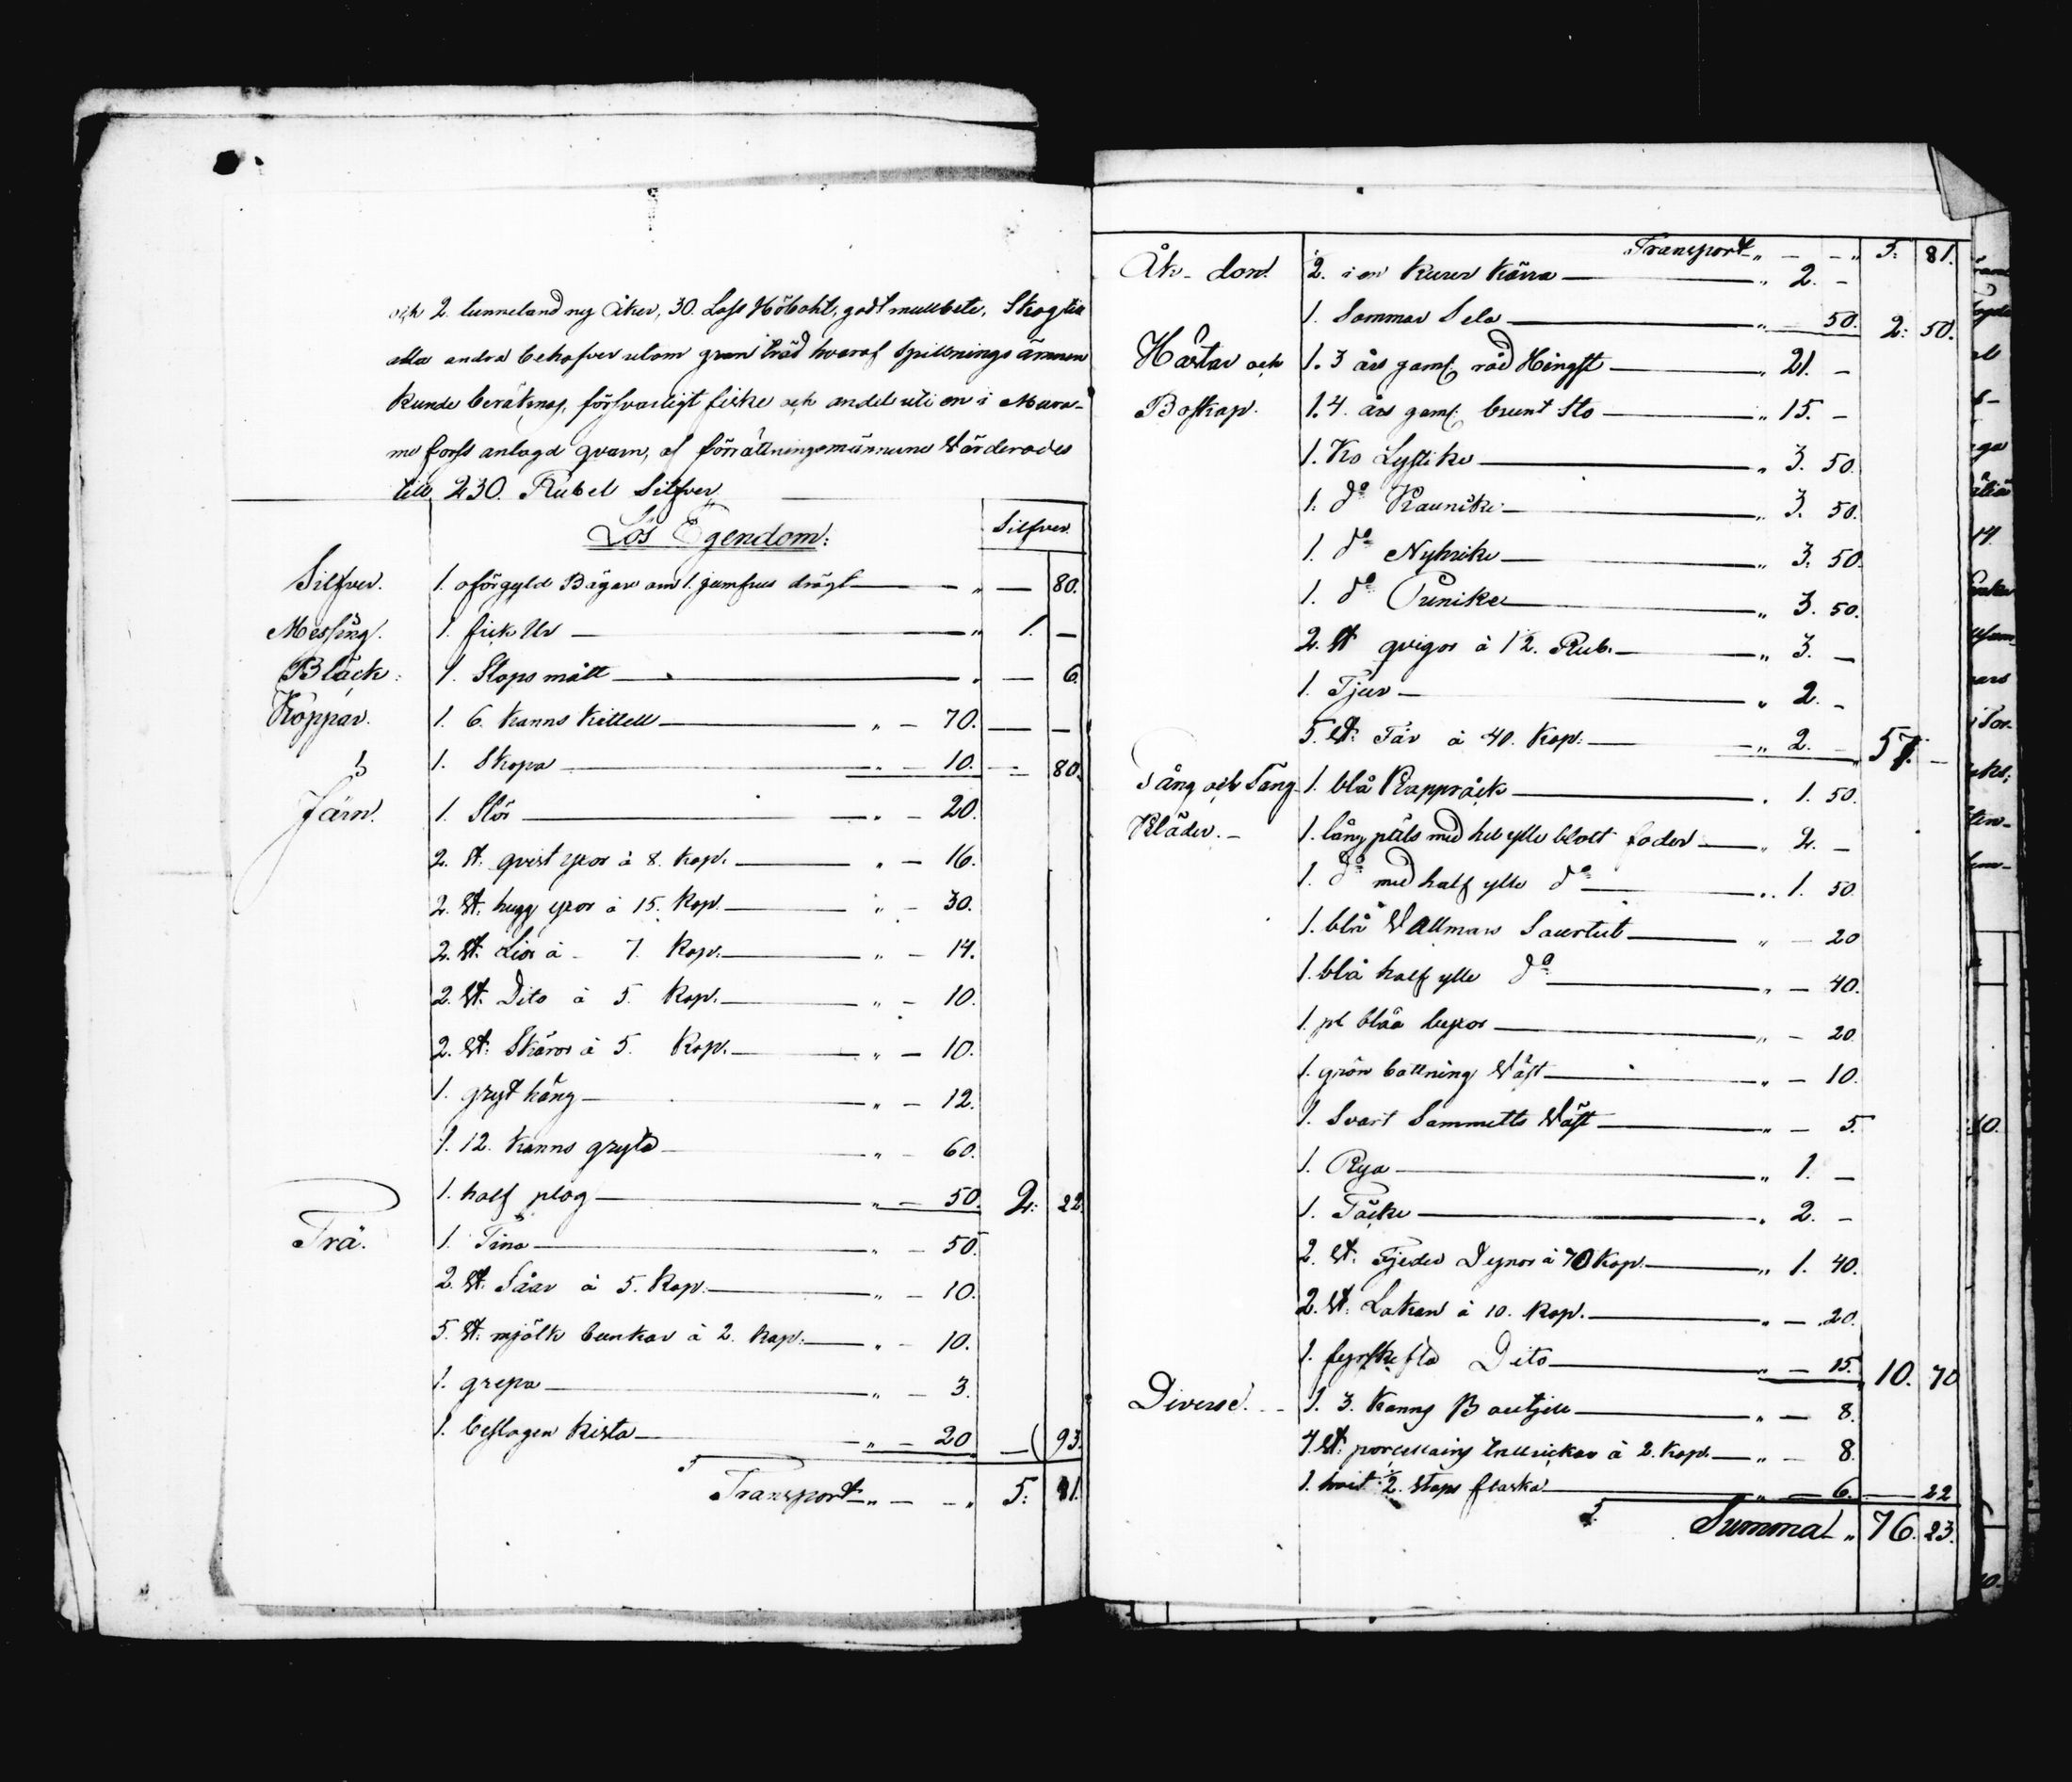 och 2. tunneland ny åker, 30. Lass Höbohl, godt mullbete, Skog till
alla andra behofver utom gran träd hvaraf Spillnings ämnen
kunde beräknas, försvarligt fiske och andel uti en i Mura-
me forss anlagd qvarn, af förrättningsmännerne värderades
till 230. Rubel Silfver
Lös Egendom: Silfver.
Silfver. 1. oförgyld Bägare om 1. jumfrus drägt „ — 80.
Messing. 1. fick Ur „ 1. —
Bläck: 1. Stops mått „ — 6.
Koppar. 1. 6. kanns kittell „ — 70. — —
1. Skopa „ — 10. — 80.
Järn. 1. Slör „ — 20.
2. st. qvist yxor à 8. kop. „ — 16.
2. st. hugg yxor à 15. kop. „ — 30.
2. st. Lior à 7. kop. „ — 14.
2. st. Dito à 5. kop. „ — 10.
2. st. Skäror à 5. kop. „ — 10.
1. gryt häng „ — 12.
1. 12. kanns gryta „ — 60.
1. half plog „ — 50. 2. 22.
Trä. 1. Tina „ — 50.
2. st. Såar à 5. kop. „ — 10.
5. st. mjölk bunkar à 2. kop. „ — 10.
1. grepa „ — 3.
1. beslagen kista „ — 20 — 93.
Transport „ — — „ 5. 81.
Transport „ — — „ 5. 81.
Åk-don. 2. i en kurer kärra „ 2. —
1. Sommar Sela „ 50. 2. 50.
Hästar och 1. 3 års gaml. röd Hingst „ 21. —
Boskap. 1. 4. års gaml. brunt Sto „ 15. —
1. Ko Lystike „ 3. 50.
1. do Kaunike „ 3. 50.
1. do Nyhrike „ 3. 50.
1. do Punike „ 3. 50.
2. st qvigor à 1 1/2. Rub. „ 3. —
1. Tjur „ 2. —
5. st. Får à 40. kop. „ 2. — 57. —
Gång och Säng 1. blå Kappråck „ 1. 50.
Kläder. — 1. lång päls med hel ylle blott foder „ 2. —
1. do med half ylle do „ 1. 50.
1. blå Vallmans Saurtut „ — 20
1. blå half ylle do „ — 40.
1. pr blåa byxor „ — 20.
1. grön battning Väst „ — 10.
1. Svart Sammetts Väst „ — 5.
1. Rya „ 1. —
1. Täcke „ 2. —
2. st. Fjeder Dynor à 70 kop. „ 1. 40.
2. st. Lakan à 10. kop. „ — 20.
1. fyrskefta Dito „ — 15. 10. 70
Diverse. 1. 3. kanns Boutjell „ — 8.
4. st. porcellains tallrickar à 2. kop. „ — 8.
1. hvit 1/2. stops flaska „ — 6. — 22
Summa „ 76. 23.